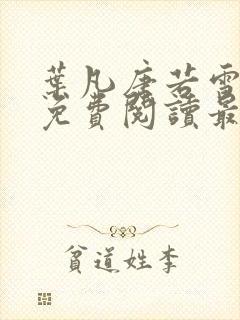 葉凡唐若雪
免費閱讀最
貧道姓李